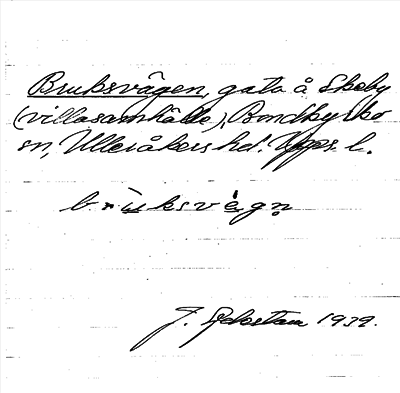 Bruksvägen, gata å Skeby
(villasamhälle), Bondkyrko
sn, Ulleråkers hd. Upps. l.
brùksvégn̥
J. 1939.